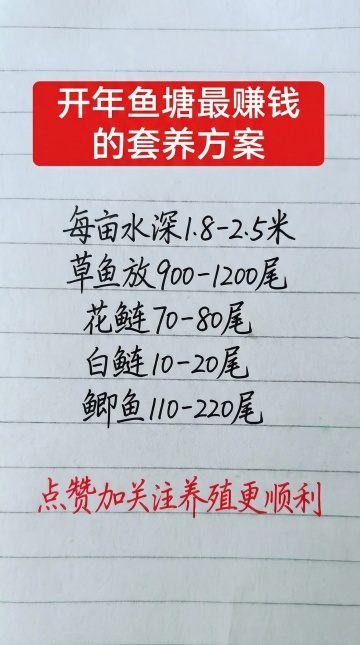 开年鱼塘最赚钱
的套养方案
每亩水深1.8-2.5米
草鱼放900-1200尾
花鲢70-80尾
白鲢10-20尾
鲫鱼110-220尾
点赞加关注养殖更顺利